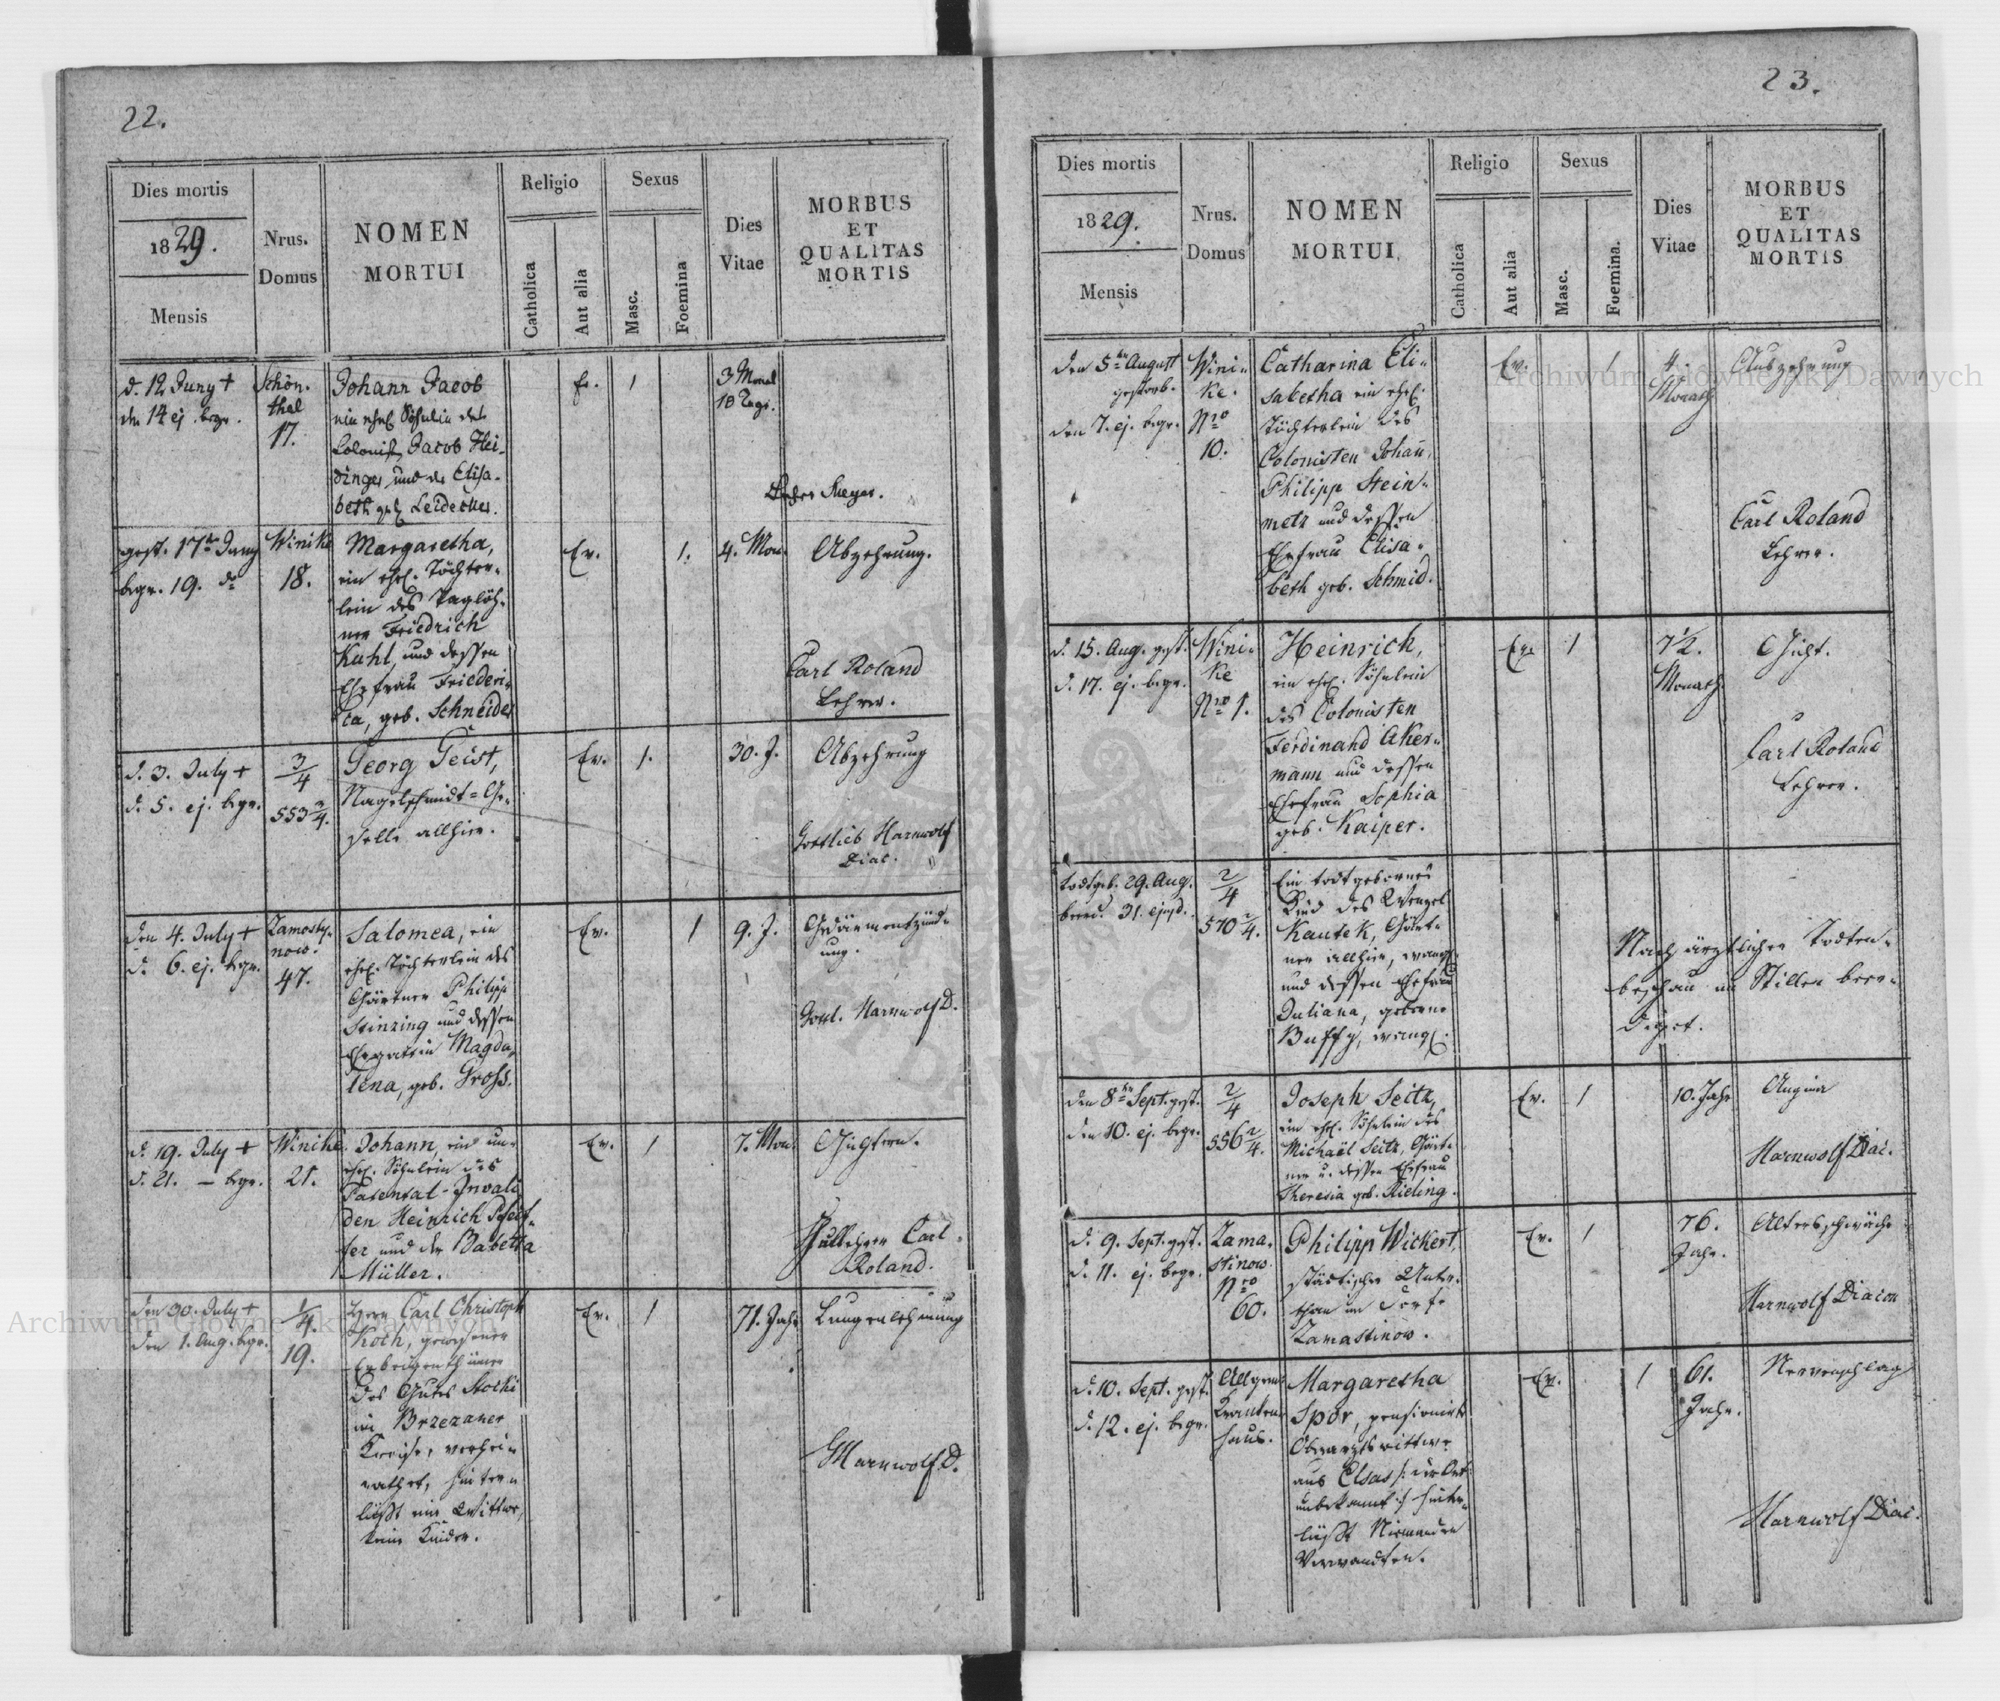 22.
Dies mortis
1829.
Mensis
Nrus.
Domus
NOMEN
MORTUI
Religio
Catholica
Aut alia
Sexus
Masc.
Foemina
Dies
Vitae
MORBUS
ET
QUALITAS
MORTIS
d. 12 Juny +
den 14 ej. begr.
Schön.
thal
17.
Johann Jacob
ein ehel Söhnlein des
Colonist Jacob Hei-
dinger und der Elisa-
beth geb Leidecker.
Ev.
1
3 Monat
18 Tage.
Lehrer Meyer.
gest. 17ten Juny
begr. 19. do
Winike
18.
Margaretha,
ein ehel. Töchter-
lein des Taglöh-
ner Friedrich
Kuhl, und dessen
Ehefrau Friederi-
ca, geb. Schneider
Ev.
1.
4. Mon.
Abzehrung.
Carl Roland
Lehrer.
d. 3. July +
d. 5. ej. begr.
3/4
553 3/4.
Georg Geist,
Nagelschmidt-Ge-
selle allhier.
Ev.
1.
30. J.
Abzehrung
Gottlieb Harnwolf
Diac.
den 4. July +
d. 6. ej. begr.
Zamosty-
now.
47.
Salomea, ein
ehel. Töchterlein des
Gärtner Philipp
Stinzing und dessen
Ehegattin Magda-
lena, geb. Gross.
Ev.
1
9. J.
Gedärmentzünd-
ung.
Gottl. Harnwolf D.
d. 19. July +
d. 21. — begr.
Winike
21.
Johann, ein un-
ehel. Söhnlein des
Patental-Invali
den Heinrich Pfeif-
fer und der Babetta
Müller.
Ev.
1
7. Mon.
Gichtern.
Schullehrer Carl
Roland.
den 30. July +
den 1. Aug. begr.
1/4.
19.
Herr Carl Christoph
Koch, gewesener
Erbeigenthümer
des Gutes Stocki
im Brzezaner
Kreise, verhei-
rathet, hinter-
läßt eine Wittwe,
keine Kinder.
Ev.
1
71. Jahr
Lungenlähmung
GHarnwolf D.
23.
Dies mortis
1829.
Mensis
Nrus.
Domus
NOMEN
MORTUI
Religio
Catholica
Aut alia
Sexus
Masc.
Foemina.
Dies
Vitae
MORBUS
ET
QUALITAS
MORTIS
den 5ten August
gestorb.
den 7. ej. begr.
Wini-
ke.
Nro
10.
Catharina Eli-
sabetha ein ehel.
Töchterlein des
Colonisten Johan,
Philipp Stein-
metz und dessen
Ehefrau Elisa-
beth geb. Schmid.
Ev.
1
4.
Monath
Auszehrung
Carl Roland
Lehrer.
d. 15. Aug. gest.
d. 17. ej. begr.
Wini-
ke
Nro 1.
Heinrich,
ein ehel. Söhnlein
des Colonisten
Ferdinand Aker-
mann und dessen
Ehefrau Sophia
geb. Kaiper.
Ev.
1
7 1/2.
Monath
Gicht.
Carl Roland
Lehrer.
todtgeb. 29. Aug.
beerd. 31. ejusd.
2/4
570 2/4.
Ein todtgebornes
Kind des Wenzel
Kautek, Gärt-
ner allhier, evangl.
und dessen Ehefrau
Juliana, geborne
Buffy, evangl.
Nach ärztlicher Todten-
beschau im Stillen beer-
diget.
den 8ten Sept. gest.
den 10. ej. begr.
2/4
556 2/4.
Joseph Seitz,
ein ehel. Söhnlein des
Michael Seitz, Gärt-
ner u. dessen Ehefrau
Theresia geb. Rieling.
Ev.
1
10. Jahr
Angina
Harnwolf Diac.
d. 9. Sept. gest.
d. 11. ej. begr.
Zama-
stinow.
Nro
60.
Philipp Wickert,
städtischer Unter-
than im Dorfe
Zamastinow.
Ev.
1
76.
Jahr.
Altersschwäche
Harnwolf Diacon
d. 10. Sept. gest.
d. 12. ej. begr.
Allgem.
Kranken
haus.
Margaretha
Spör, pensionirte
Oberarztswittwe
aus Elsas /: der Ort
unbekannt :/ hinter-
läßt Niemanden
Verwandten.
Ev.
1
61.
Jahr.
Nervenschlag
Harnwolf Diac.
Archiwum Główne Akt Dawnych
Archiwum Główne Akt Dawnych